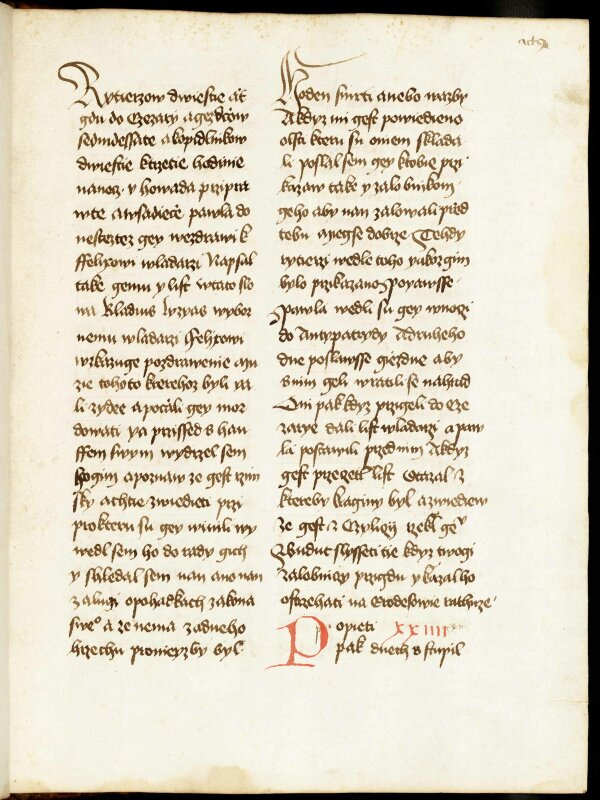 actꝰ
Rytierzow dwiestie at
gdu do Czezary a gezdcow
sedmdessate a kopidlnikow
dwiestie k trzetie hodinie
nanocz · y howada przipra
wte a wsadiece pawla do
nesterzez gey wezdrawi k
ffelixowi wladarzi Napsal
take gemu y list w tato slo
wa Kladius Lyzyas wybor
nemu wladarzi ffelixowi
wzkazuge pozdrawenie a mu
zie tohoto kterehoz byli ya
li zydee a pocali gey mor
dowati ya przissed s han
ffem swym wydrzel sem
ho gim a poznaw ze gest rzim
sky a chtie zwiedieti przi
pro kteru su gey winili wy
wedl sem ho do rady gich
y shledal sem nan ano nan
zalugi o pohadkach zakona
sweº a ze nema zadneho
hrzechu pro niey zby byl
Moden smrti anebo wazby
A kdyz mi gest powiedieno
o lsti kteru su o niem sklada
li poslal sem gey k tobie przi
kazaw take y zalobnikom
geho aby nan zalowali przed
tebu a miegse dobrze Tehdy
rytierzi wedle toho yakoz gim
bylo przikazano Poyawsse
Pawla wedli su gey w noczi
do Antypatrydy A druheho
dne poslawsse giezdne aby
s nim geli wratili se nahrad
Oni pak kdyz przigeli do Cze
zarye dali list wladarzi a paw
la postawili przed nim A kdyz
gest przeczetl list Otazal z
ktereby kraginy byl a zwiediew
ze gest z Czyliczy rzekl geº
Budut slysseti tie kdyz twogi
zalobniczy przigdu y kazal ho
ostrzehati na Erodesowie rathuze
Po pieti xxiiii
pak dnech sstupil